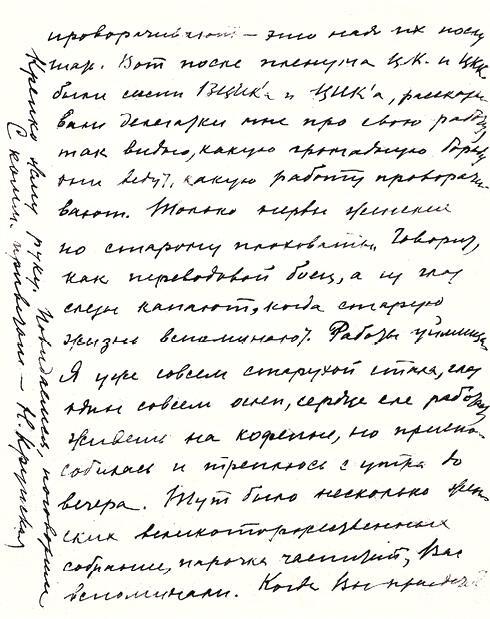 проворачивают — это надо их послу
шар. Вот после пленума ЦК. и ЦКК
были сессии ВЦИК'а и ЦИК'а, рассказы
вали делегатки мне про свою работу,
так видно, какую громадную борьбу
они ведут, какую работу проворачи-
вают. Только нервы женские
по старому плоховаты. Говорит,
как передовой боец, а из глаз
слезы капают, когда старую
жизнь вспоминают. Работы
Я уже совсем старухой стала, глаз
один совсем ослеп, сердце еле работ
живешь на кофеине, но приспо-
собилась и треплюсь с утра до
вечера. Тут было несколько жен
ских великоторжественных
собраний, парочка частний, Вас
вспоминали. Когда Вы приедете
Крепко жму руку. Повидаемся, поговорим
С комм. приветом — Н. Крупская